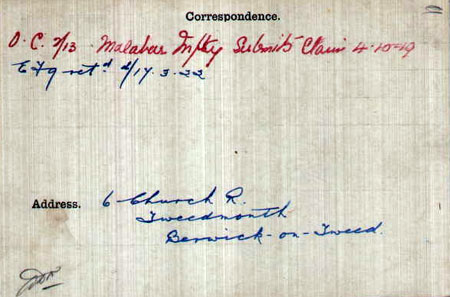 Correspondence.
O.C. 2/13 Malabar Infty Submits Claim 4-10-19
E F9 retd d/17.3.22
Address. 6 Church R.
Tweedmouth
Berwick-on-Tweed.